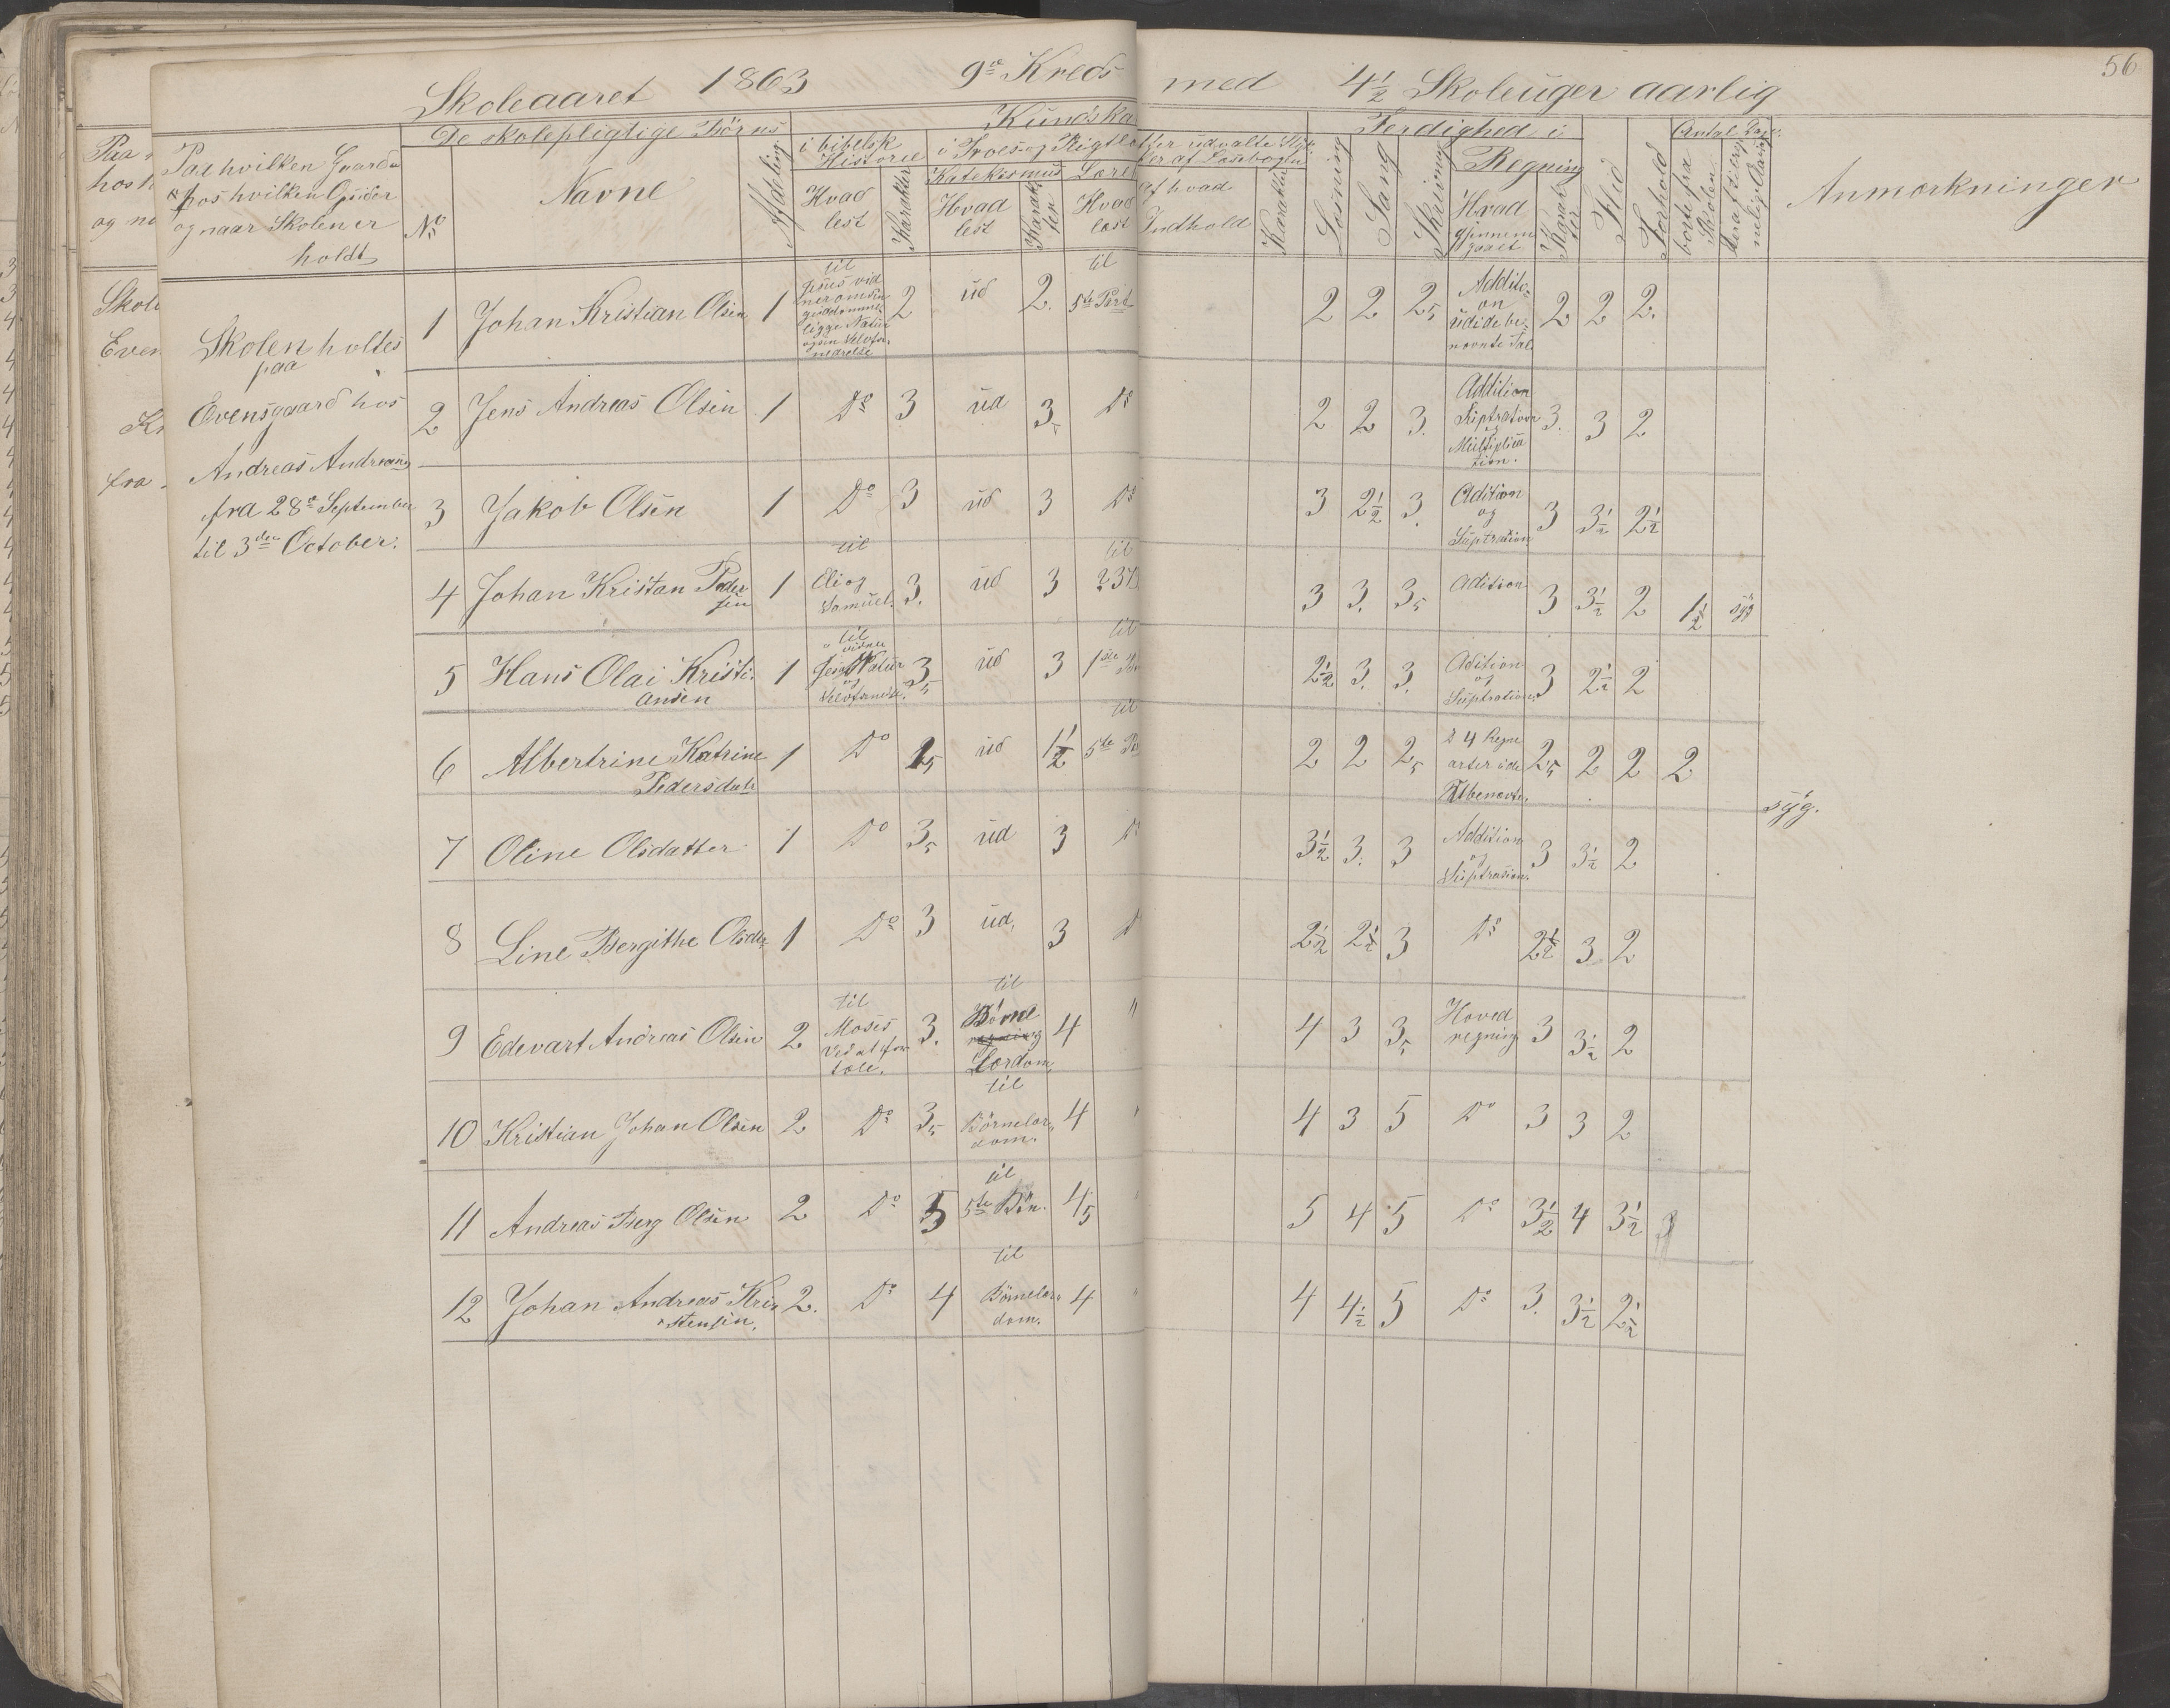 56
Skoleaaret 1863 9de Kreds med 4 1/2 Skoleuger aarlig
Paa hvilken Gaard
hos hvilken Opsider
og naar Skolen er
holdt
De skolepligtige Börns
No
Navne
Afdeling
Kundska
i bibelsk
Historie
Hvad
lest
Karakter
i Troes og Pligtlæ
Katekismus
Hvad
lest
Karakter
Hvad
læst
udvalte Styk
ker af Læsebogen
af hvad
Indhold
Karakter
Ferdighed i
Læsning
Sang
Skrivning
Regning
Hvad
gjennem
gaaet
Karakter
Flid
Forhold
Antal Dage
borte fra
Skolen
Anmærkninger
Skolen holtes
paa
Evensgaard hos
Andreas Andreasen
fra 28de September
til 3den October.
1 Johan Kristian Olsen 1 til Jesus vid 2 ud 2. til 5te Part 2 2 2,5 Additi- on udi de be- nævnte Tal 2 2 2.
2 Jens Andreas Olsen 1 Do 3 ud 3, Do 2 2 3. Addition Suptration Multiplica tion. 3. 3 2
3 Jakob Olsen 1 Do 3 ud 3 Do 3 2 1/2 3. Adition og Suptration 3 3 1/2 2 1/2
4 Johan Kristan Peder sen 1 til Eli og Samuel. 3. ud 3 til 237 3 3. 3,5 Adition 3 3 1/2 2 1 1/2 syg
5 Hans Olai Kristi ansen 1 til Natur og 3,5 ud 3 til 1ste 2 1/2 3. 3. Adition og Suptration. 3 2 1/2 2
6 Albertrine Katrine Pedersdatr 1 Do ud 1 1/2 til 5te 2 2 2,5 4 Regne arter i de 2,5 2 2 2
syg.
7 Oline Olsdatter 1 Do 3,5 ud 3 3 1/2 3. 3 Addition og Suptrasion. 3 3 1/2 2
8 Line Bergithe Olsdr 1 Do 3 ud, 3 2 1/2 2 1/2 3 Do 2 1/2 3 2
9 Edevart Andreas Olsen 2 til Moses 3. til Börne Lærdom 4 " 4 3 3,5 Hoved regning 3 3 1/2 2
10 Kristian Johan Olsen 2 Do 3,5 til Börnelær dom. 4 4 3 5 Do 3 3 2
11 Andreas Berg Olsen 2 Do 5 til 5te Bön. 4,5 5 4 5 Do 3 1/2 4 3 1/2
12 Johan Andreas Kris stensen. 2. Do 4 til Börnelær dom. 4 4 4 1/2 5 Do 3. 3 1/2 2 1/2